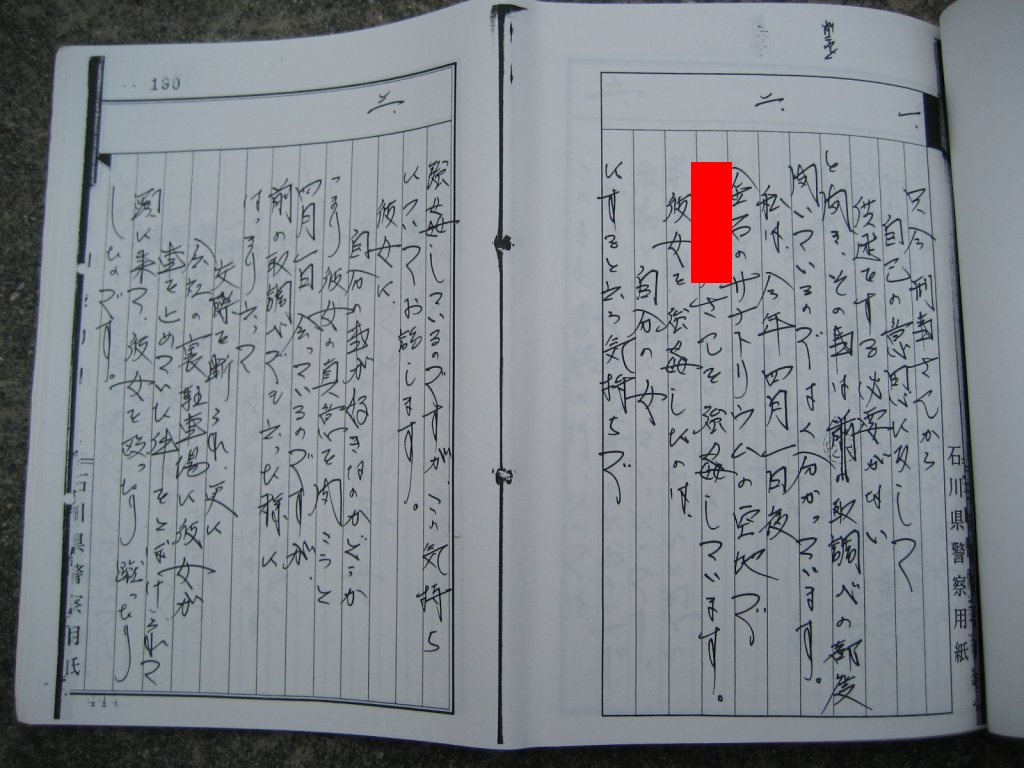 一、
只今刑事さんから
自己の意思に反して
供述をする必要がない
と聞き、その事は前の取調べの都度
聞いているのではよく分かっています。
二、
私は、今年四月一日夜
金石のサナトリウムの空地で
さんを強姦しています。
彼女を強姦したのは、
自分の女
にすると云う気持ちで
石川県警察用紙
190
強姦しているのですが、この気持ち
について お話しします。
三、
彼女に、
自分の事が好きなのかどうか
つまり彼女の真意を聞こうと
四月一日 会っているのですが、
前の取調べでも云った様に
はっきり云って
交際を断られ、更に
会社の裏駐車場に彼女が
車を止めていた
に来て、彼女を殴ったり
したのです。
石川県警察用紙